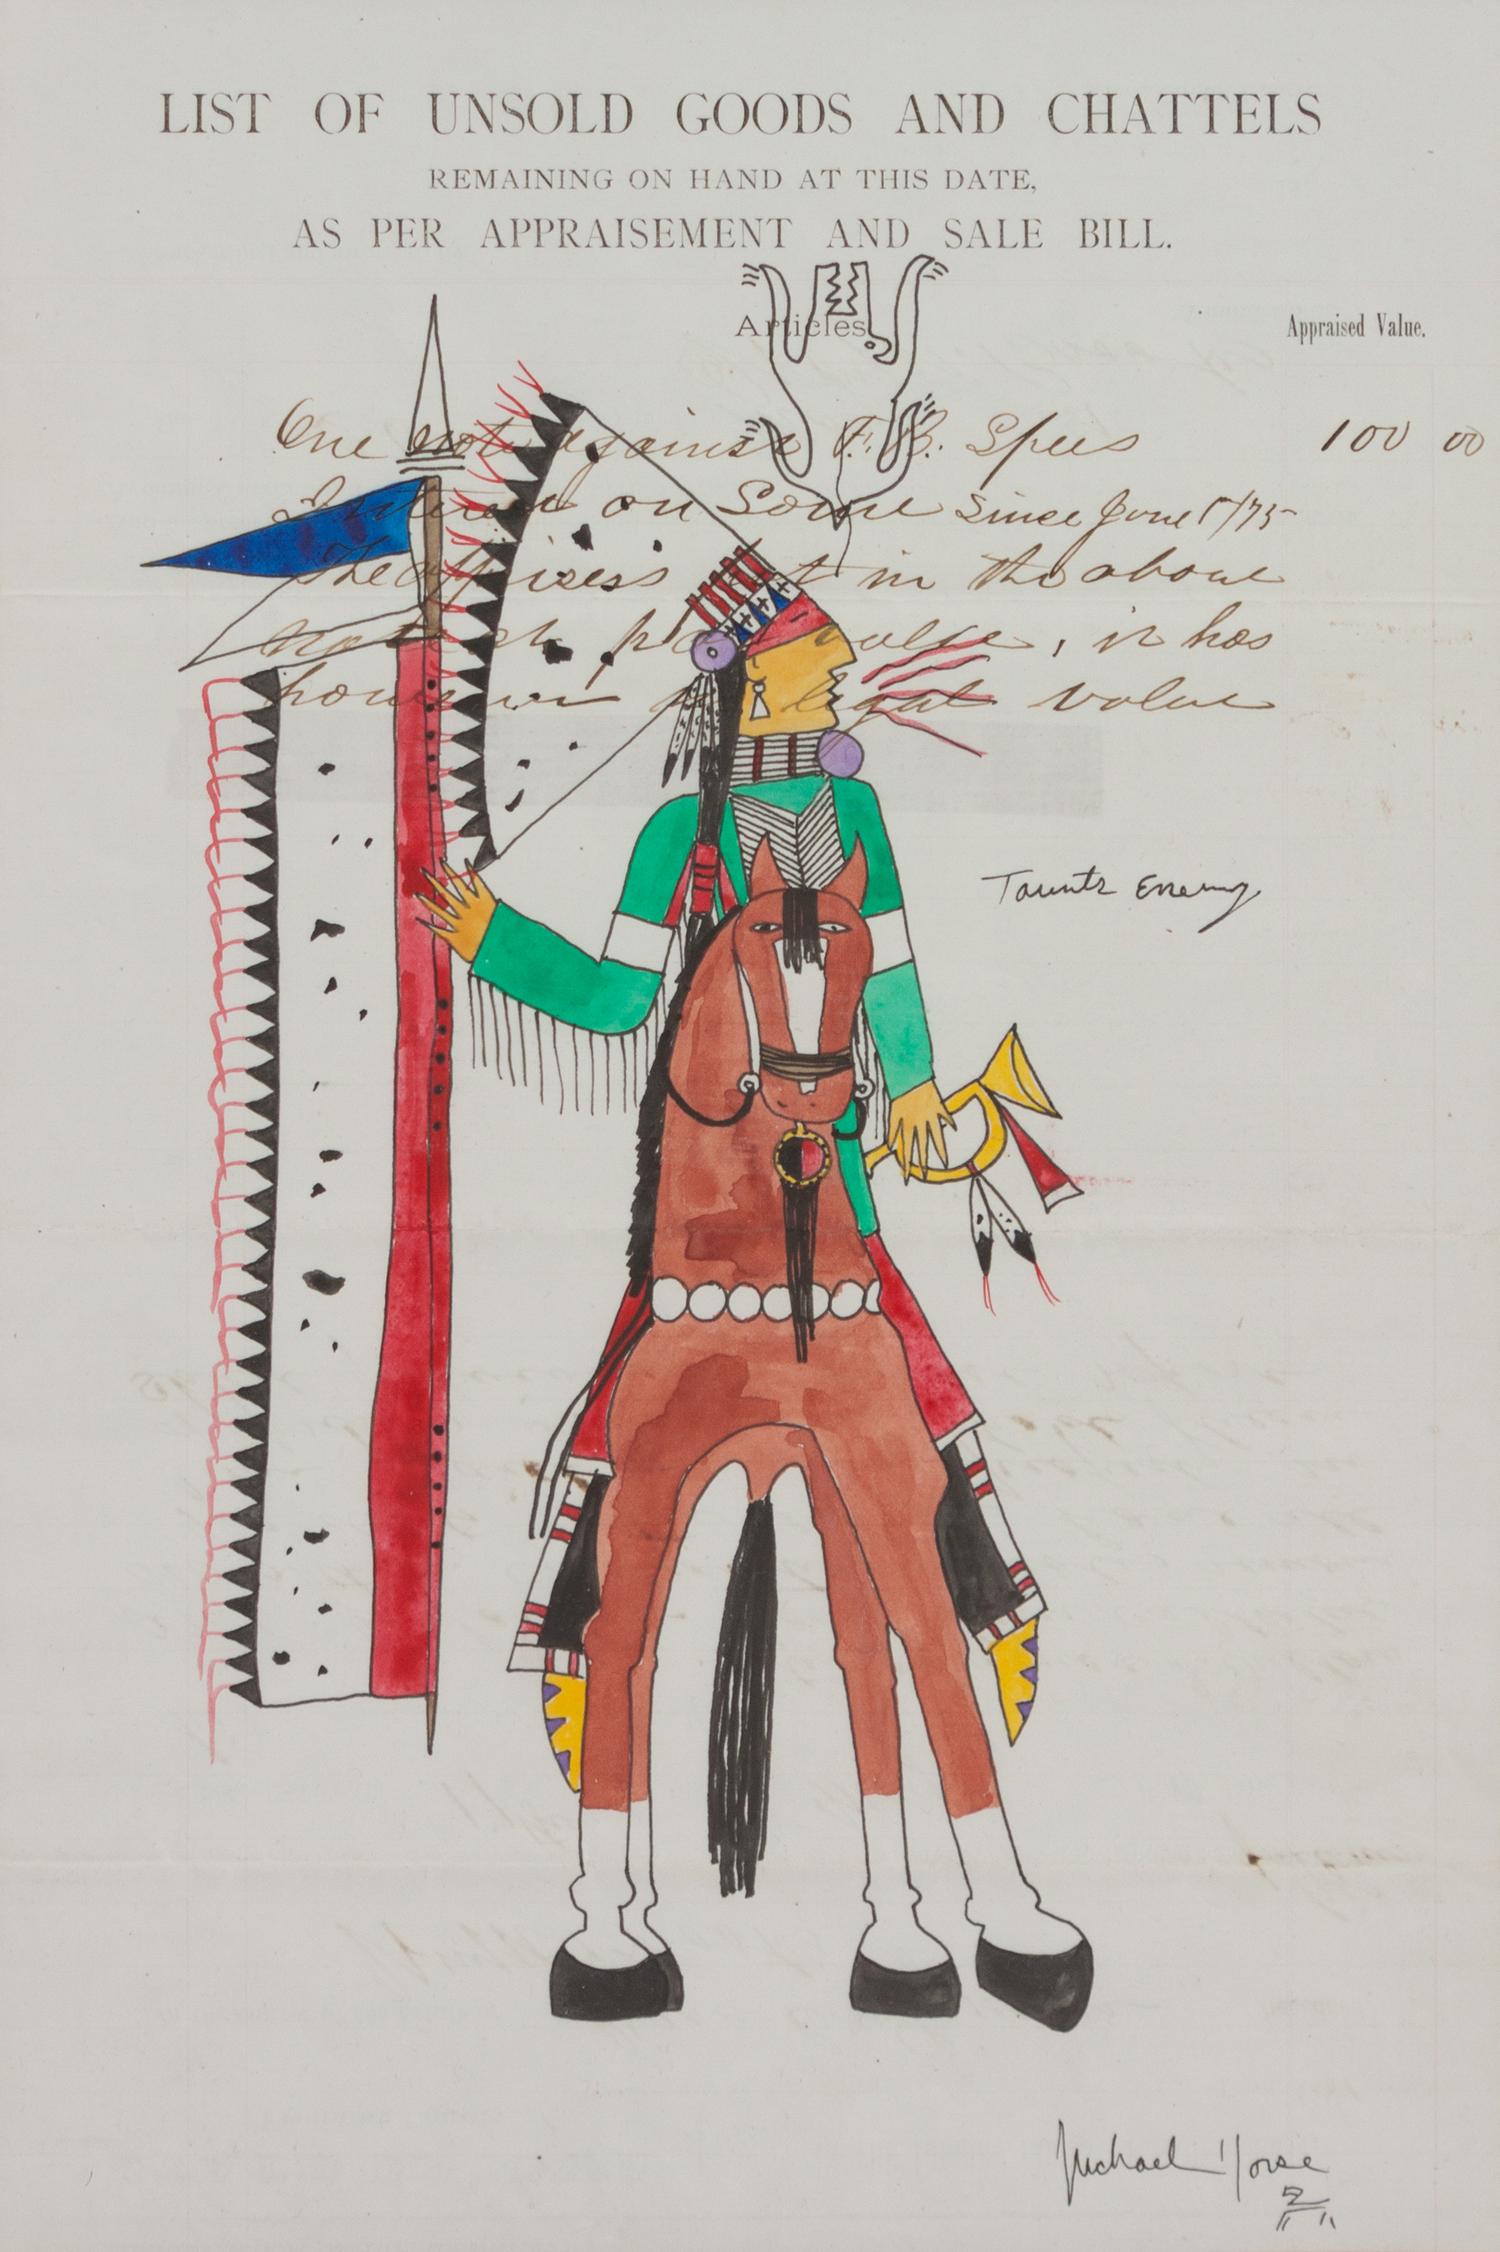 LIST OF UNSOLD GOODS AND CHATTELS
REMAINING ON HAND AT THIS DATE,
AS PER APPRAISEMENT AND SALE BILL.
Articles
Appraised Value.
One note against F. B. Spees 100 00
Interest on Same since June 1/75
The appraisers in the above
value, it has
however legal value
Taunts Enemy
Michael Horse